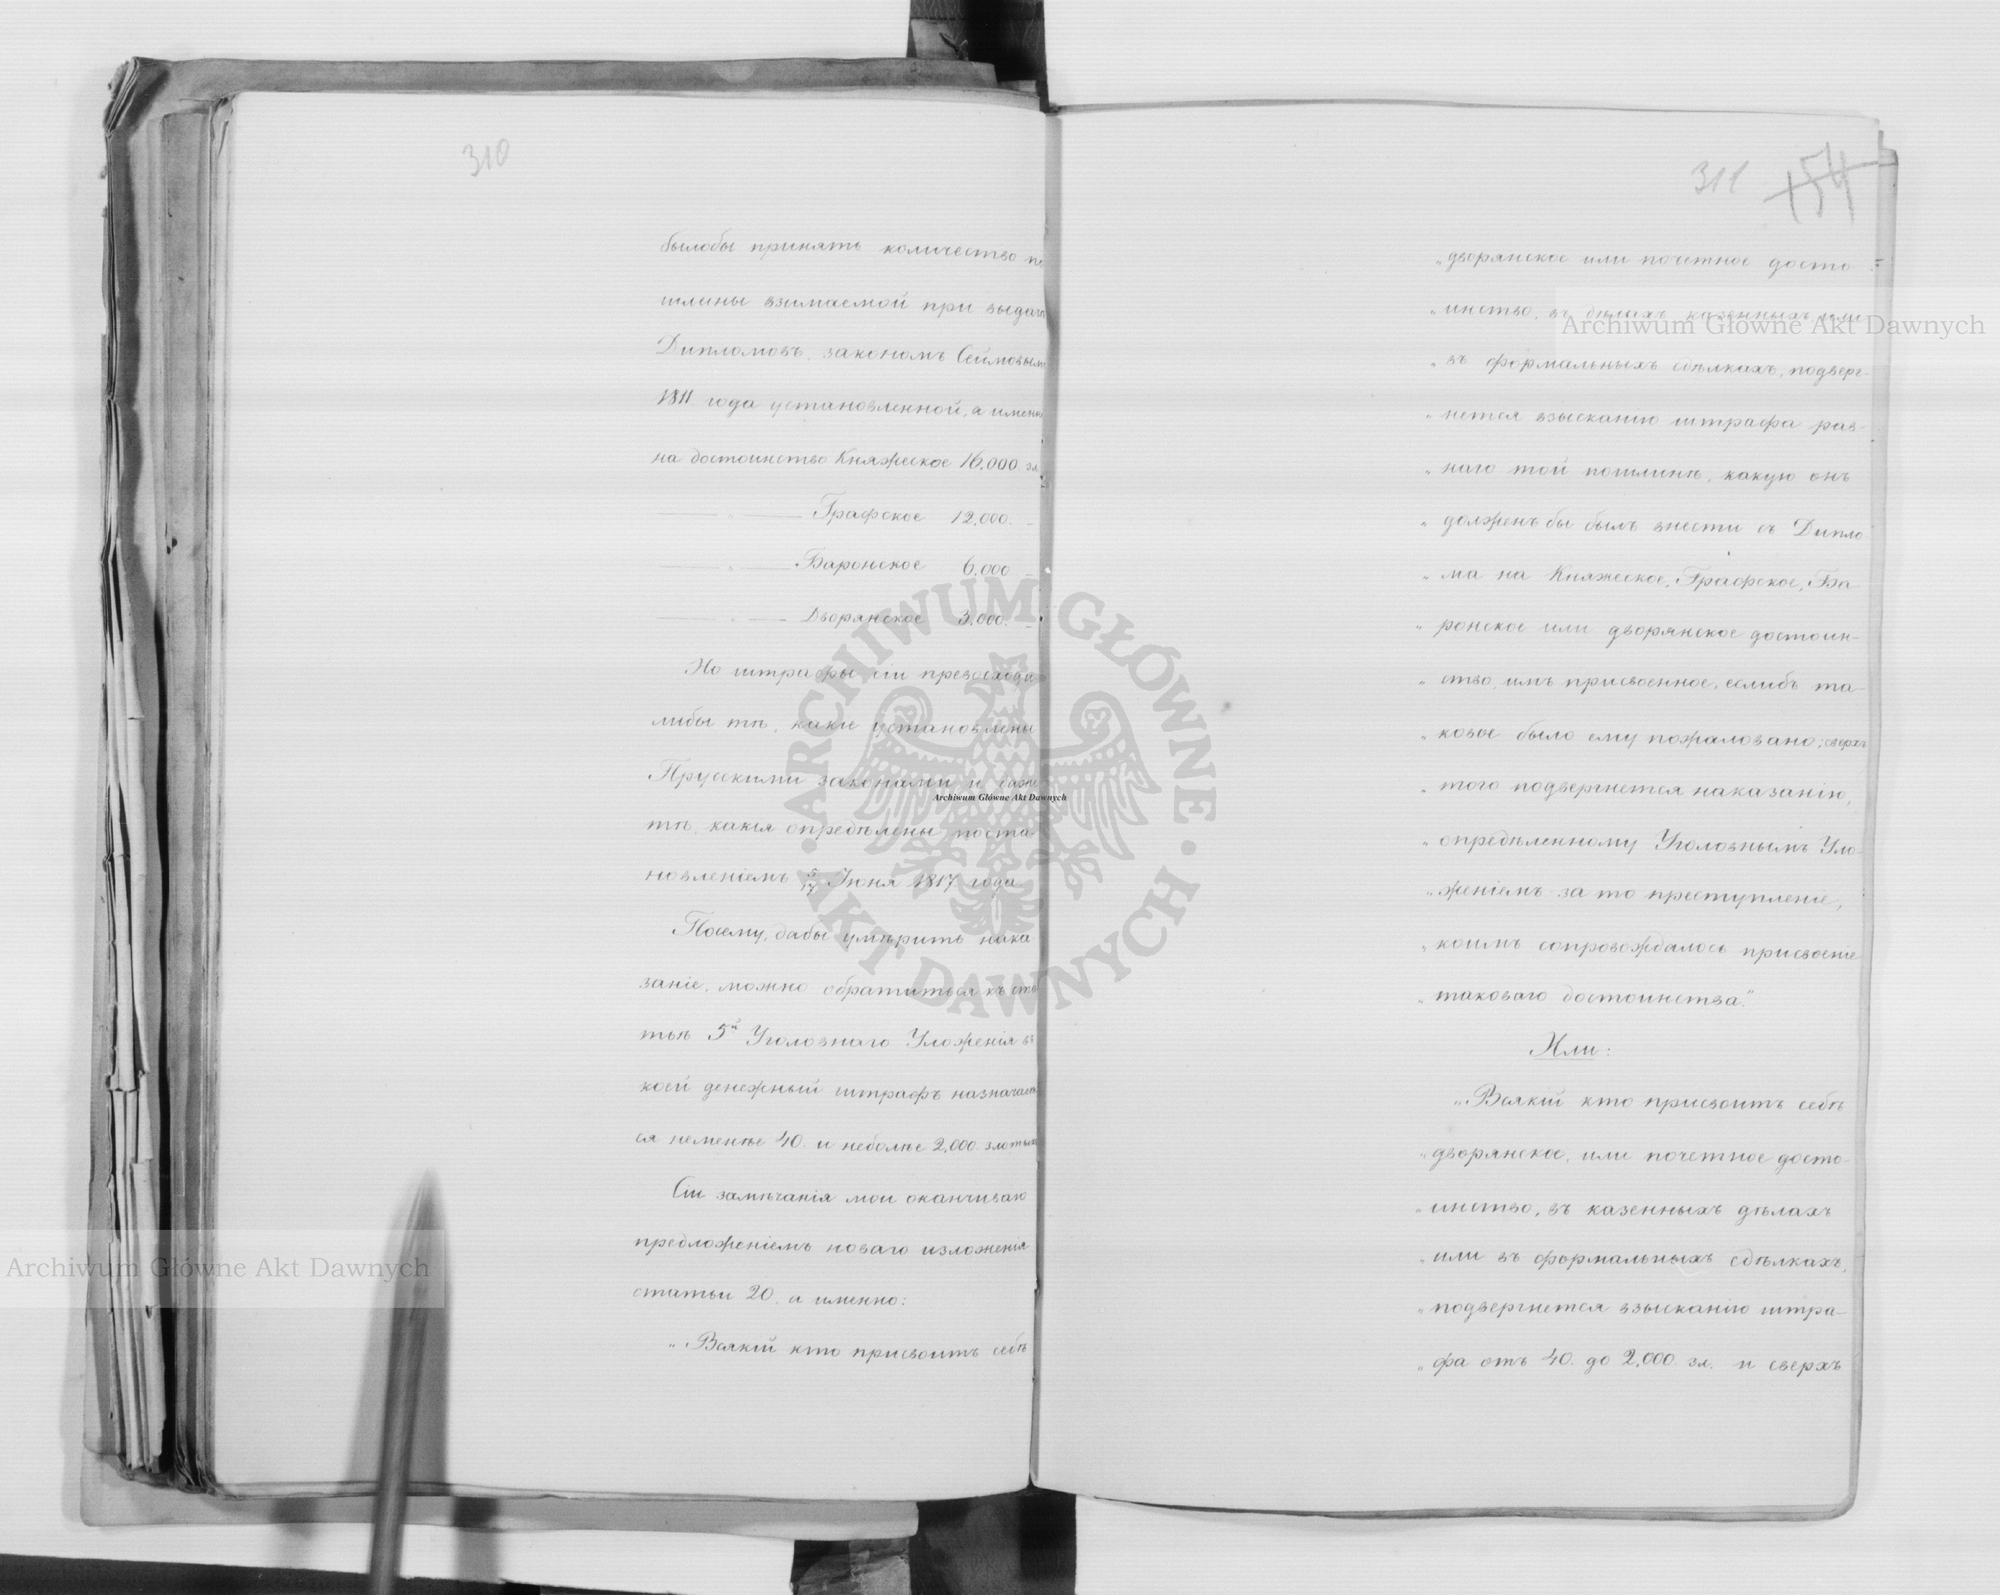 310
былобы принять количество по
шлины взимаемой при выдачѣ
Дипломовъ, закономъ Сеймовымъ
1811 года установленной, а именно
на достоинство Княжеское 16,000 зл.
— „ — Графское 12,000. –
— „ — Баронское 6,000 –
— „ — Дворянское 3,000. –
Но штрафы сіи превосходи
либы тѣ, какіе установлены
Прусскими законами и даже
тѣ, какія опредѣлены поста-
новленіемъ 5/17 Іюня 1817 года.
Посему, дабы умѣрить нака
заніе, можно обратиться къ ста
тьѣ 5й Уголовнаго Уложенія въ
коей денежный штрафъ назначает
ся неменѣе 40. и неболѣе 2,000 злотыхъ
Сіи замѣчанія мои оканчиваю
предложеніемъ новаго изложенія
статьи 20. а именно:
„Всякій кто присвоитъ себѣ
311 154
„дворянское или почетное досто
„инство, въ дѣлахъ казенныхъ или
„въ формальныхъ сдѣлкахъ, подверг-
„нется взысканію штрафа рав-
„наго той пошлинѣ, какую онъ
„долженъ бы былъ внести съ Дипло
„ма на Княжеское, Графское, Ба-
„ронское или дворянское достоин-
„ство, имъ присвоенное, еслибъ та-
„ковое было ему пожаловано; сверхъ
„того подвергнется наказанію,
„опредѣленному Уголовнымъ Уло-
„женіемъ за то преступленіе,
„коимъ сопровождалось присвоеніе
„таковаго достоинства."
Или:
„Всякій кто присвоитъ себѣ
„дворянское, или почетное досто-
„инство, въ казенныхъ дѣлахъ
„или въ формальныхъ сдѣлкахъ,
„подвергнется взысканію штра-
„фа отъ 40. до 2,000 зл. и сверхъ
Archiwum Główne Akt Dawnych
Archiwum Główne Akt Dawnych
Archiwum Główne Akt Dawnych
ARCHIWUM GŁÓWNE
AKT DAWNYCH